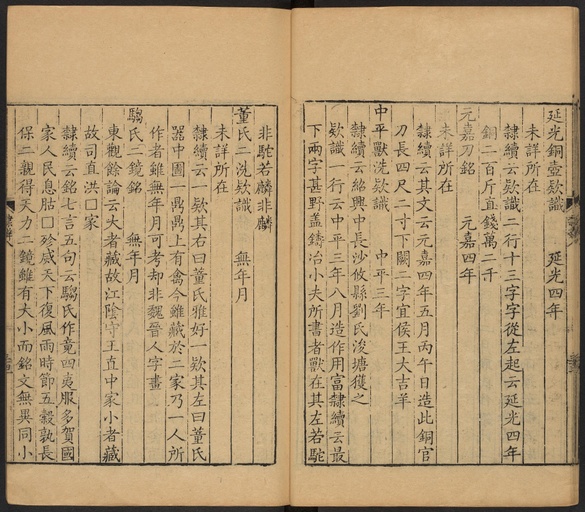 延光銅壺欵識　延光四年
未詳所在
隸續云欵識一行十三字字從左起云延光四年
銅二百斤直錢萬二千
元嘉刀銘　元嘉四年
未詳所在
隸續云其文云元嘉四年五月丙午日造此銅官
刀長四尺二寸下闕二字宜侯王大吉羊
中平獸洗欵識　中平三年
隸續云紹興中長沙攸縣劉氏浚塘獲之
欵識一行云中平三年八月造作用富隸續云最
下兩字甚野葢鑄冶小夫所書者獸在其左若駝
非駝若麟非麟
董氏二洗欵識　無年月
未詳所在
隸續云一欵其右曰董氏雅好一欵其左曰董氏
器中圖一鼎鼎上有禽今雖藏於二家乃一人所
作者雖無年月可考却非魏晉人字畫
騶氏二鏡銘　無年月
東觀餘論云大者藏故江陰守王直中家小者藏
故司直洪□家
隸續云銘七言五句云騶氏作竟四夷服多賀國
家人民息胡□殄烕天下復風雨時節五穀孰長
保二親得天力二鏡雖有大小而銘文無異同小